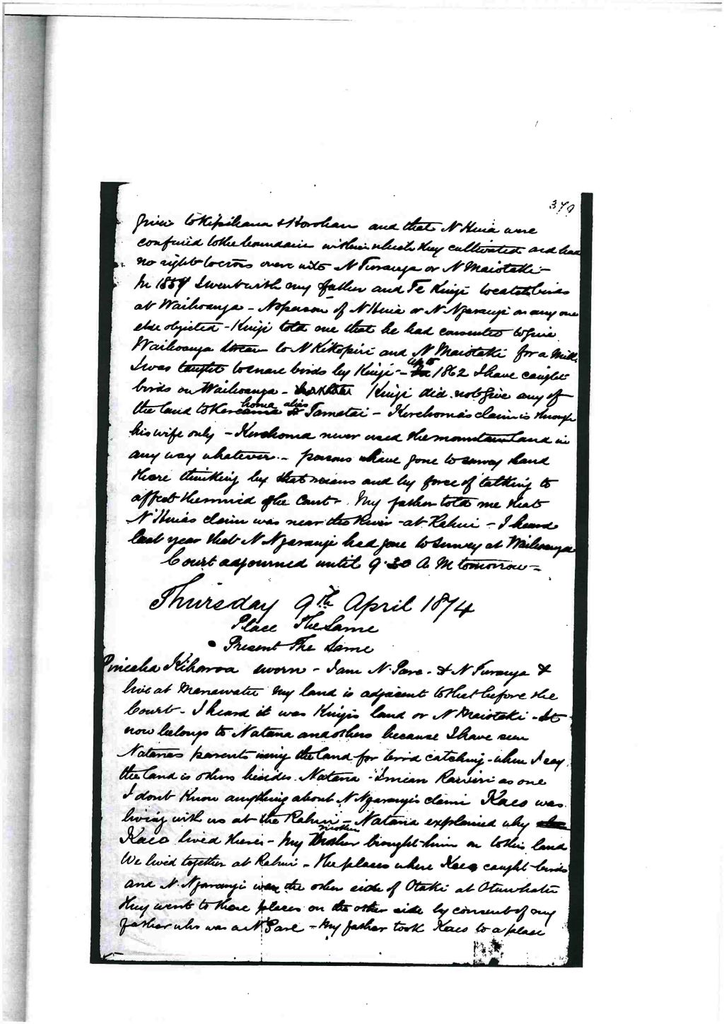 379
given to Hipihana & Horohau and that N Huia were
confined to the boundaries within which they cultivated and had
no right to cross over into N Turanga or N Maiotaki -
In 1854 I went with my father and Te Kingi to catch birds
at Waihoanga - No person of N Huia or N. Ngarangi or any one
else objected - Kingi told me that he had consented to give
Waihoanga stream to N Kikopiri and N Maiotaki for a Mill
I was taught to snare birds by Kingi - up to 1862 I have caught
birds on Waihoanga - Kingi did not give any of
the land to Kerehoma alias Tamatai - Kerehoma's claim is through
his wife only - Kerehoma never used the mountain land in
any way whatever - persons have gone to survey land
there thinking by that means and by force of talking to
affect the mind of the Court. My father told me that
N Huia's claim was near the River at Rahui - I heard
last year that N Ngarangi had gone to survey at Waihoanga
Court adjourned until 9.30 A M tomorrow -
Thursday 9th April 1874
Place The Same
Present The Same
Kiharoa sworn - I am N. Pare - & N Turanga &
live at Manawatu my land is adjacent to that before the
Court - I heard it was Kingi's land or N Maiotaki - It
now belongs to Natana and others because I have seen
Natana's parents using the land for bird catching - when I say
the land is others besides Natana - Rawiri is one
I dont know anything about N Ngarangi's claim Kaeo was
living with us at the Rahui - Natana explained why
Kaeo lived there - My mother brought him on to this land
We lived together at Rahui - The places where Kaeo caught birds
and N. Ngarangi was the other side of Otaki at
they went to these places on the other side by consent of my
father who was a N Pare - My father took Kaeo to a place